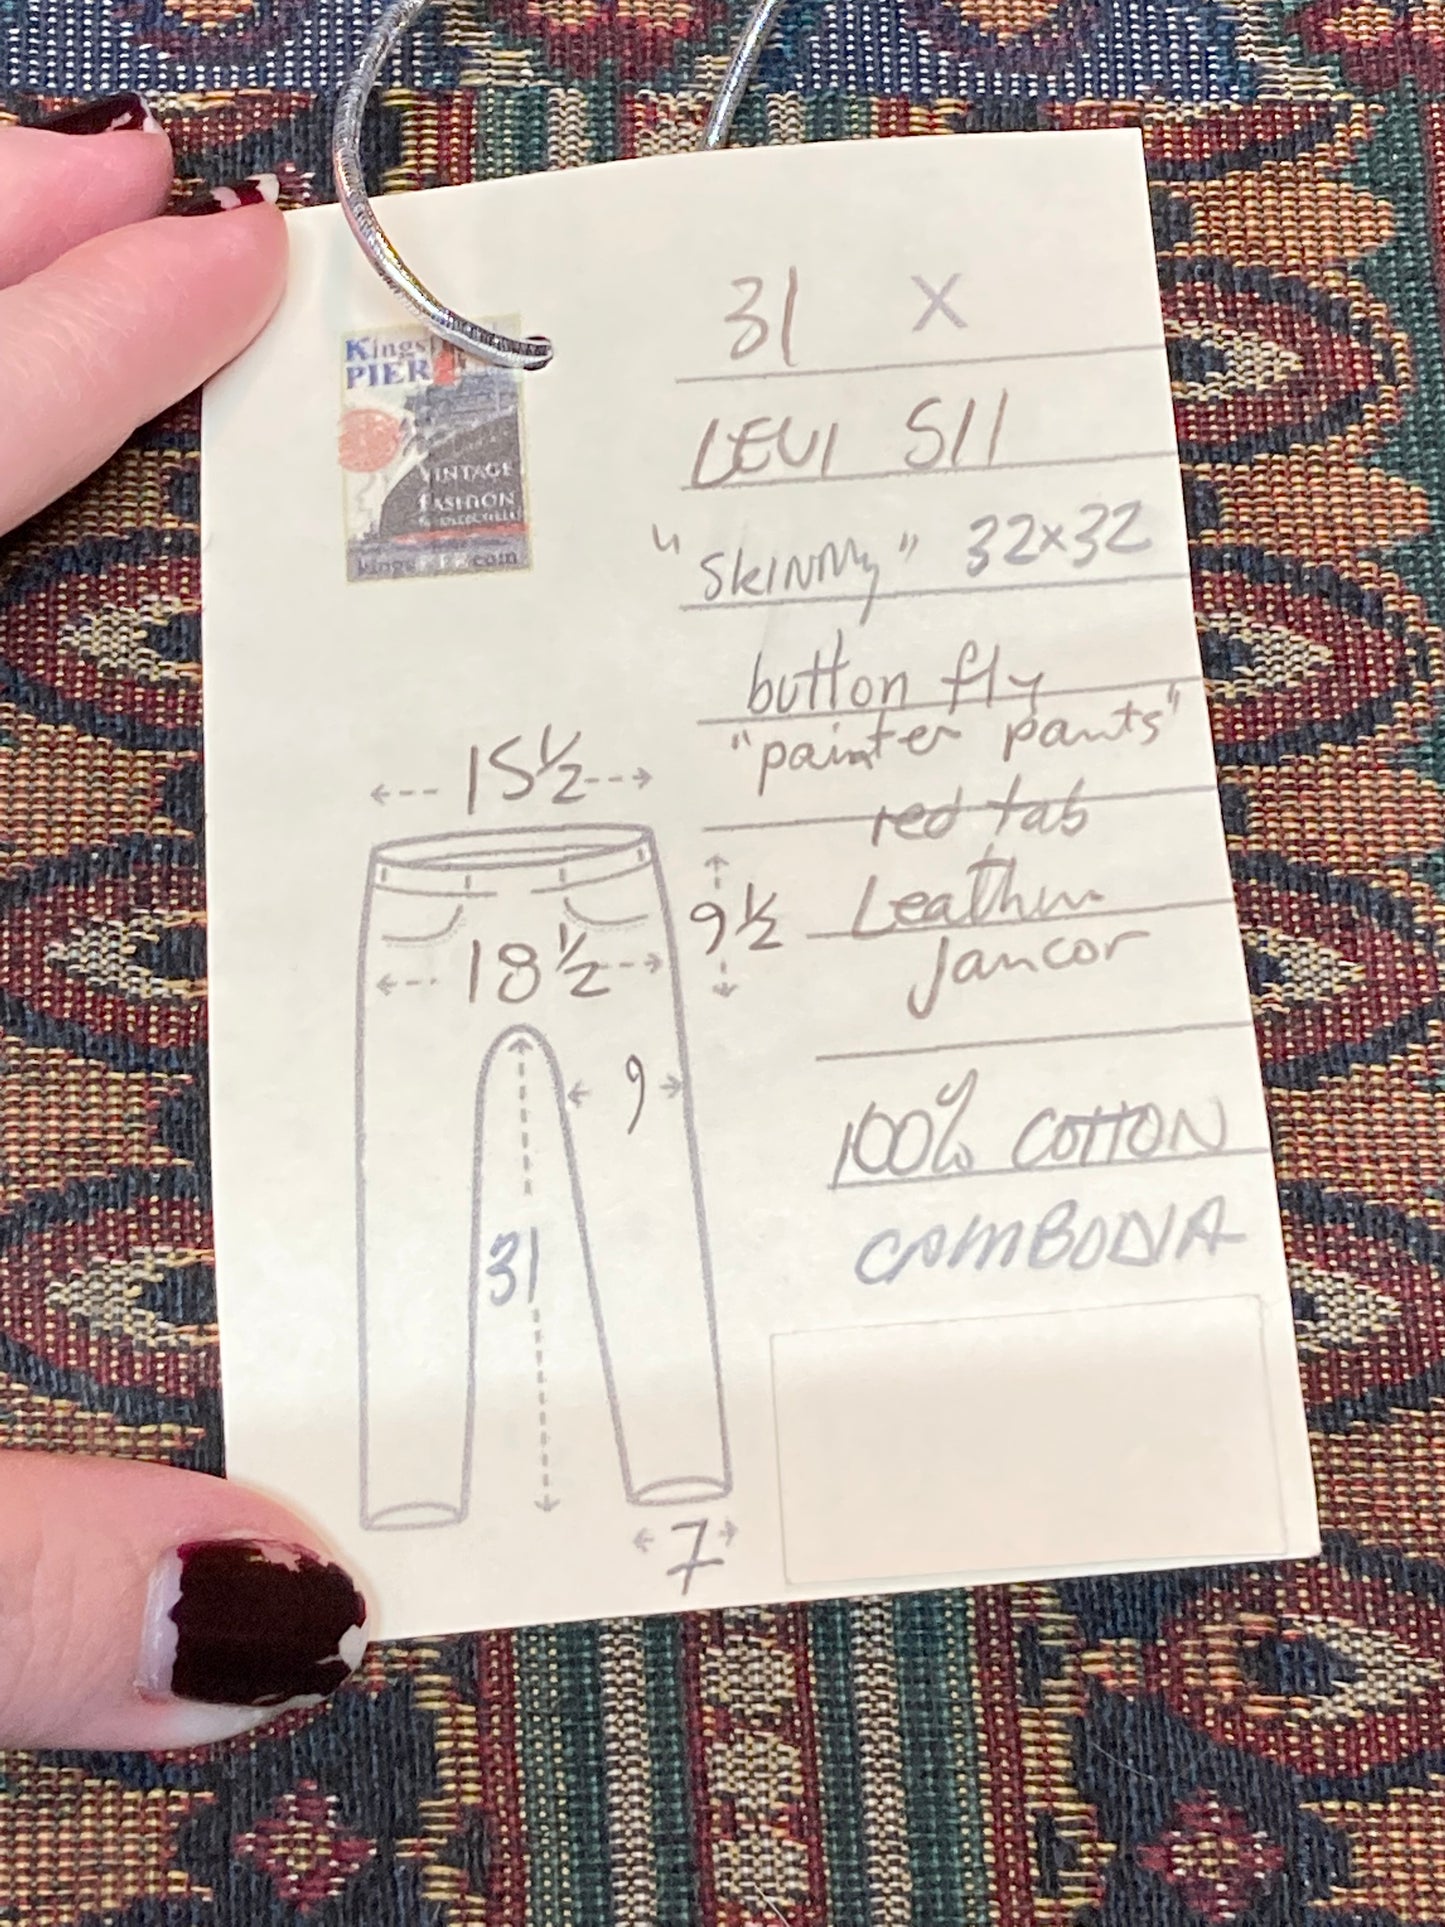 31 X
Kings
PIER
LEVI 511
VINTAGE
FASHION
"SKINNY" 32x32
kings .com
button fly
"painter pants"
15 1/2
red tab
Leather
9 1/2
Jancor
18 1/2
9
100% COTTON
31
CAMBODIA
7